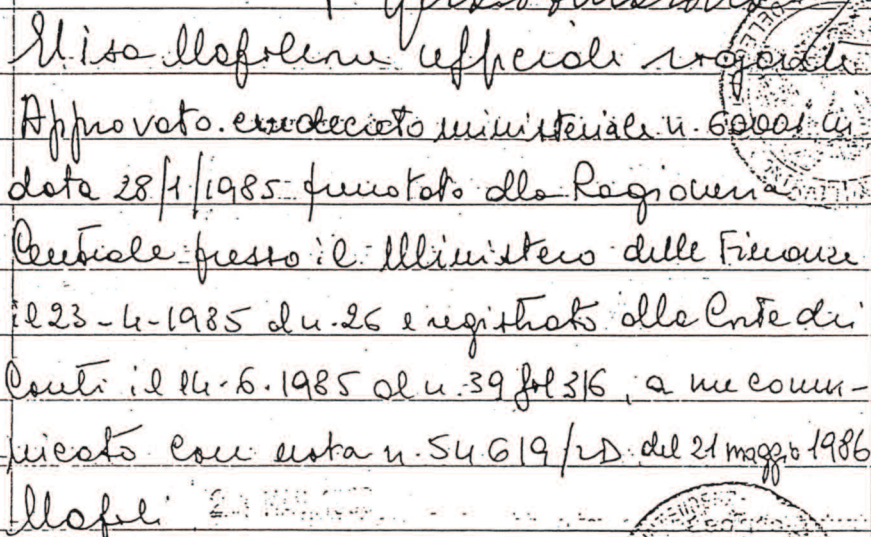 Elisa Napolano ufficiale rogante
Approvato con decreto ministeriale n. 60001 in
data 28/1/1985 prenotato alla Ragioneria
Centrale presso il Ministero delle Finanze
il 23-4-1985 al n. 26 e registrato alla Corte dei
Conti il 14-6-1985 al n. 39 fol 316, a me comu-
nicato con nota n. 54619/2D del 21 maggio 1986
Napoli